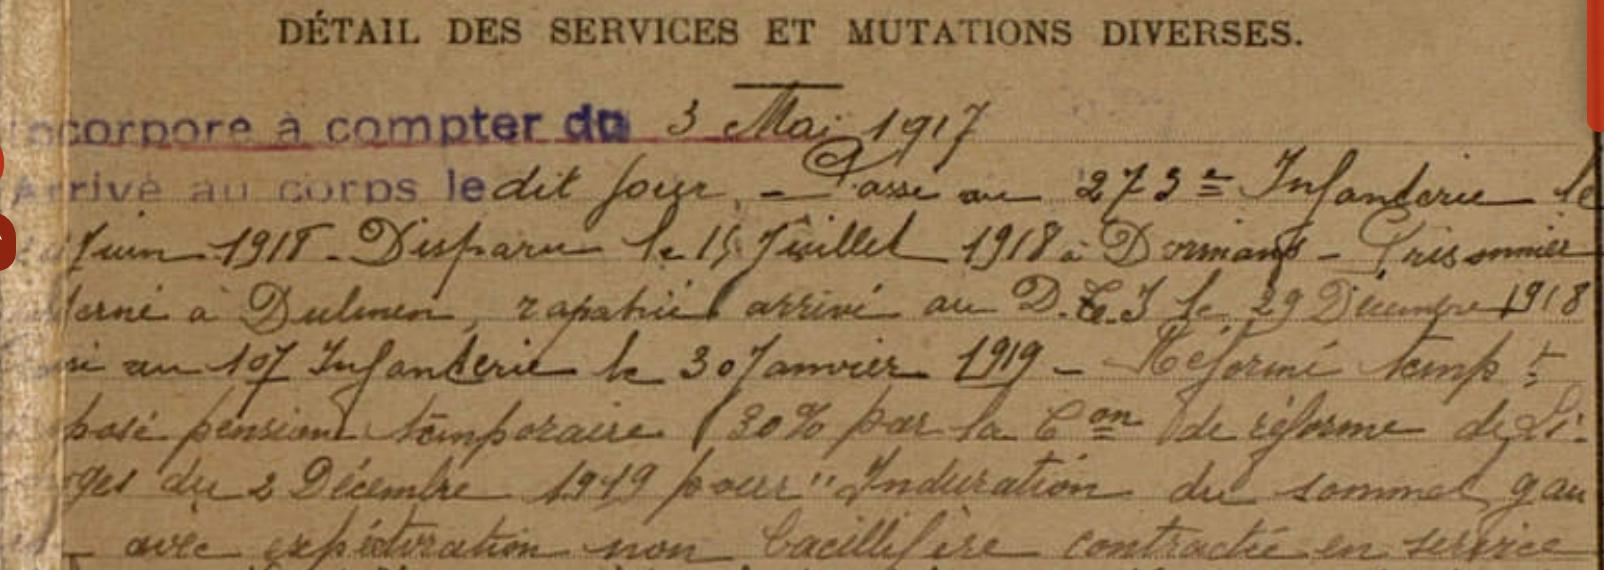 DÉTAIL DES SERVICES ET MUTATIONS DIVERSES.
ncorporé à compter du 3 Mai 1917
Arrivé au corps le dit jour, - Passé au 273e Infanterie le
Juin 1918 - Disparu le 15 Juillet 1918 à Dormans - Prisonnier
terné à Dulmen, rapatrié arrivé au D.T.I le 29 Décembre 1918
au 107 Infanterie le 30 Janvier 1919 - Réformé temp t
posé pension temporaire 30% par la Con de réforme de Li-
oges du 2 Décembre 1919 pour "Induration du sommet gau
avec expectoration non bacillifère contractée en service